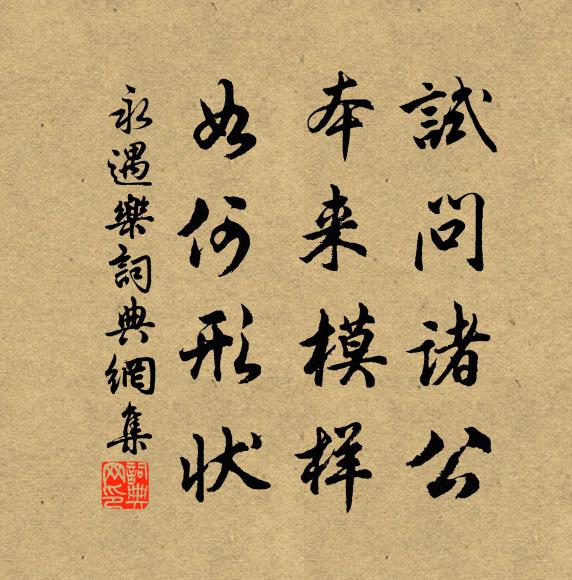 試問諸公
本来模样
如何形状
永遇樂詞典網集
詞典网印